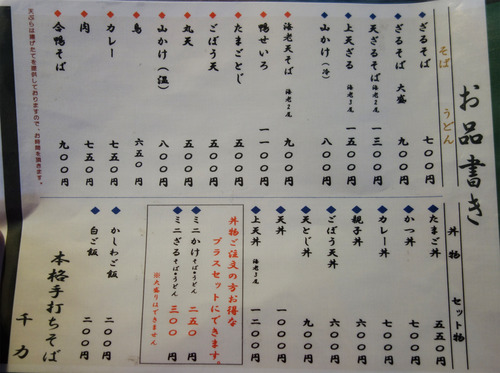 お品書き
そば うどん
ざるそば 七〇〇円
ざるそば 大盛 九〇〇円
天ざるそば 海老2尾 一三〇〇円
上天ざる 海老3尾 一五〇〇円
山かけ(冷) 八〇〇円
海老天そば 海老2尾 九〇〇円
鴨せいろ 一一〇〇円
たまごとじ 五〇〇円
ごぼう天 五〇〇円
丸天 五〇〇円
山かけ(温) 八〇〇円
鳥 六五〇円
カレー 七五〇円
肉 七五〇円
合鴨そば 九〇〇円
天ぷらは揚げたてを提供しておりますので、お時間を頂きます。
丼物 セット物
たまご丼 五五〇円
かつ丼 七〇〇円
カレー丼 七〇〇円
親子丼 六〇〇円
ごぼう天丼 六〇〇円
天とじ丼 九〇〇円
天丼 一〇〇〇円
上天丼 海老3尾 一二〇〇円
丼物ご注文の方お得な
プラスセットにできます。
ミニかけそば・うどん 二五〇円
ミニざるそば・うどん 三〇〇円
※大盛りはできません
かしわご飯 二〇〇円
白ご飯 二〇〇円
本格手打ちそば
千力